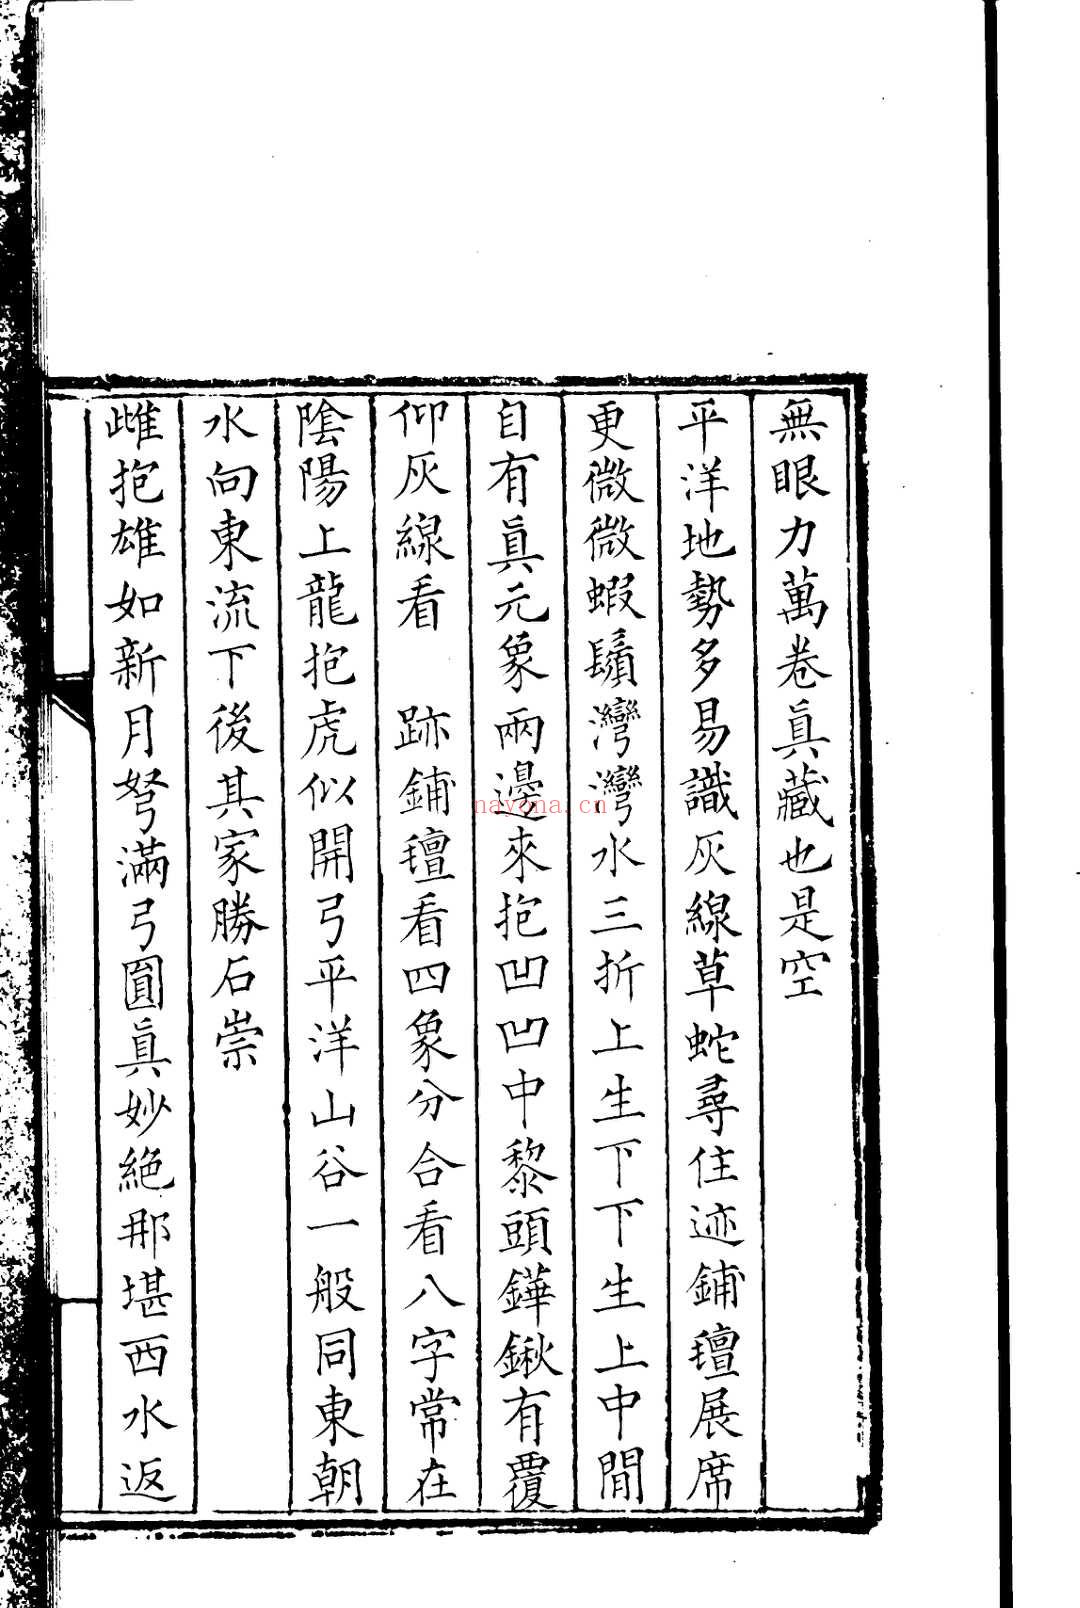 無眼力萬卷真藏也是空
平洋地勢多易識灰線草蛇尋住迹鋪氊展席
更微微蝦鬚灣灣水三折上生下下生上中間
自有真元象兩邊來抱凹凹中黎頭鏵鍬有覆
仰灰線看 跡鋪氊看四象分合看八字常在
陰陽上龍抱虎似開弓平洋山谷一般同東朝
水向東流下後其家勝石崇
雌抱雄如新月弩滿弓圓真妙絕那堪西水返
nayona.cn